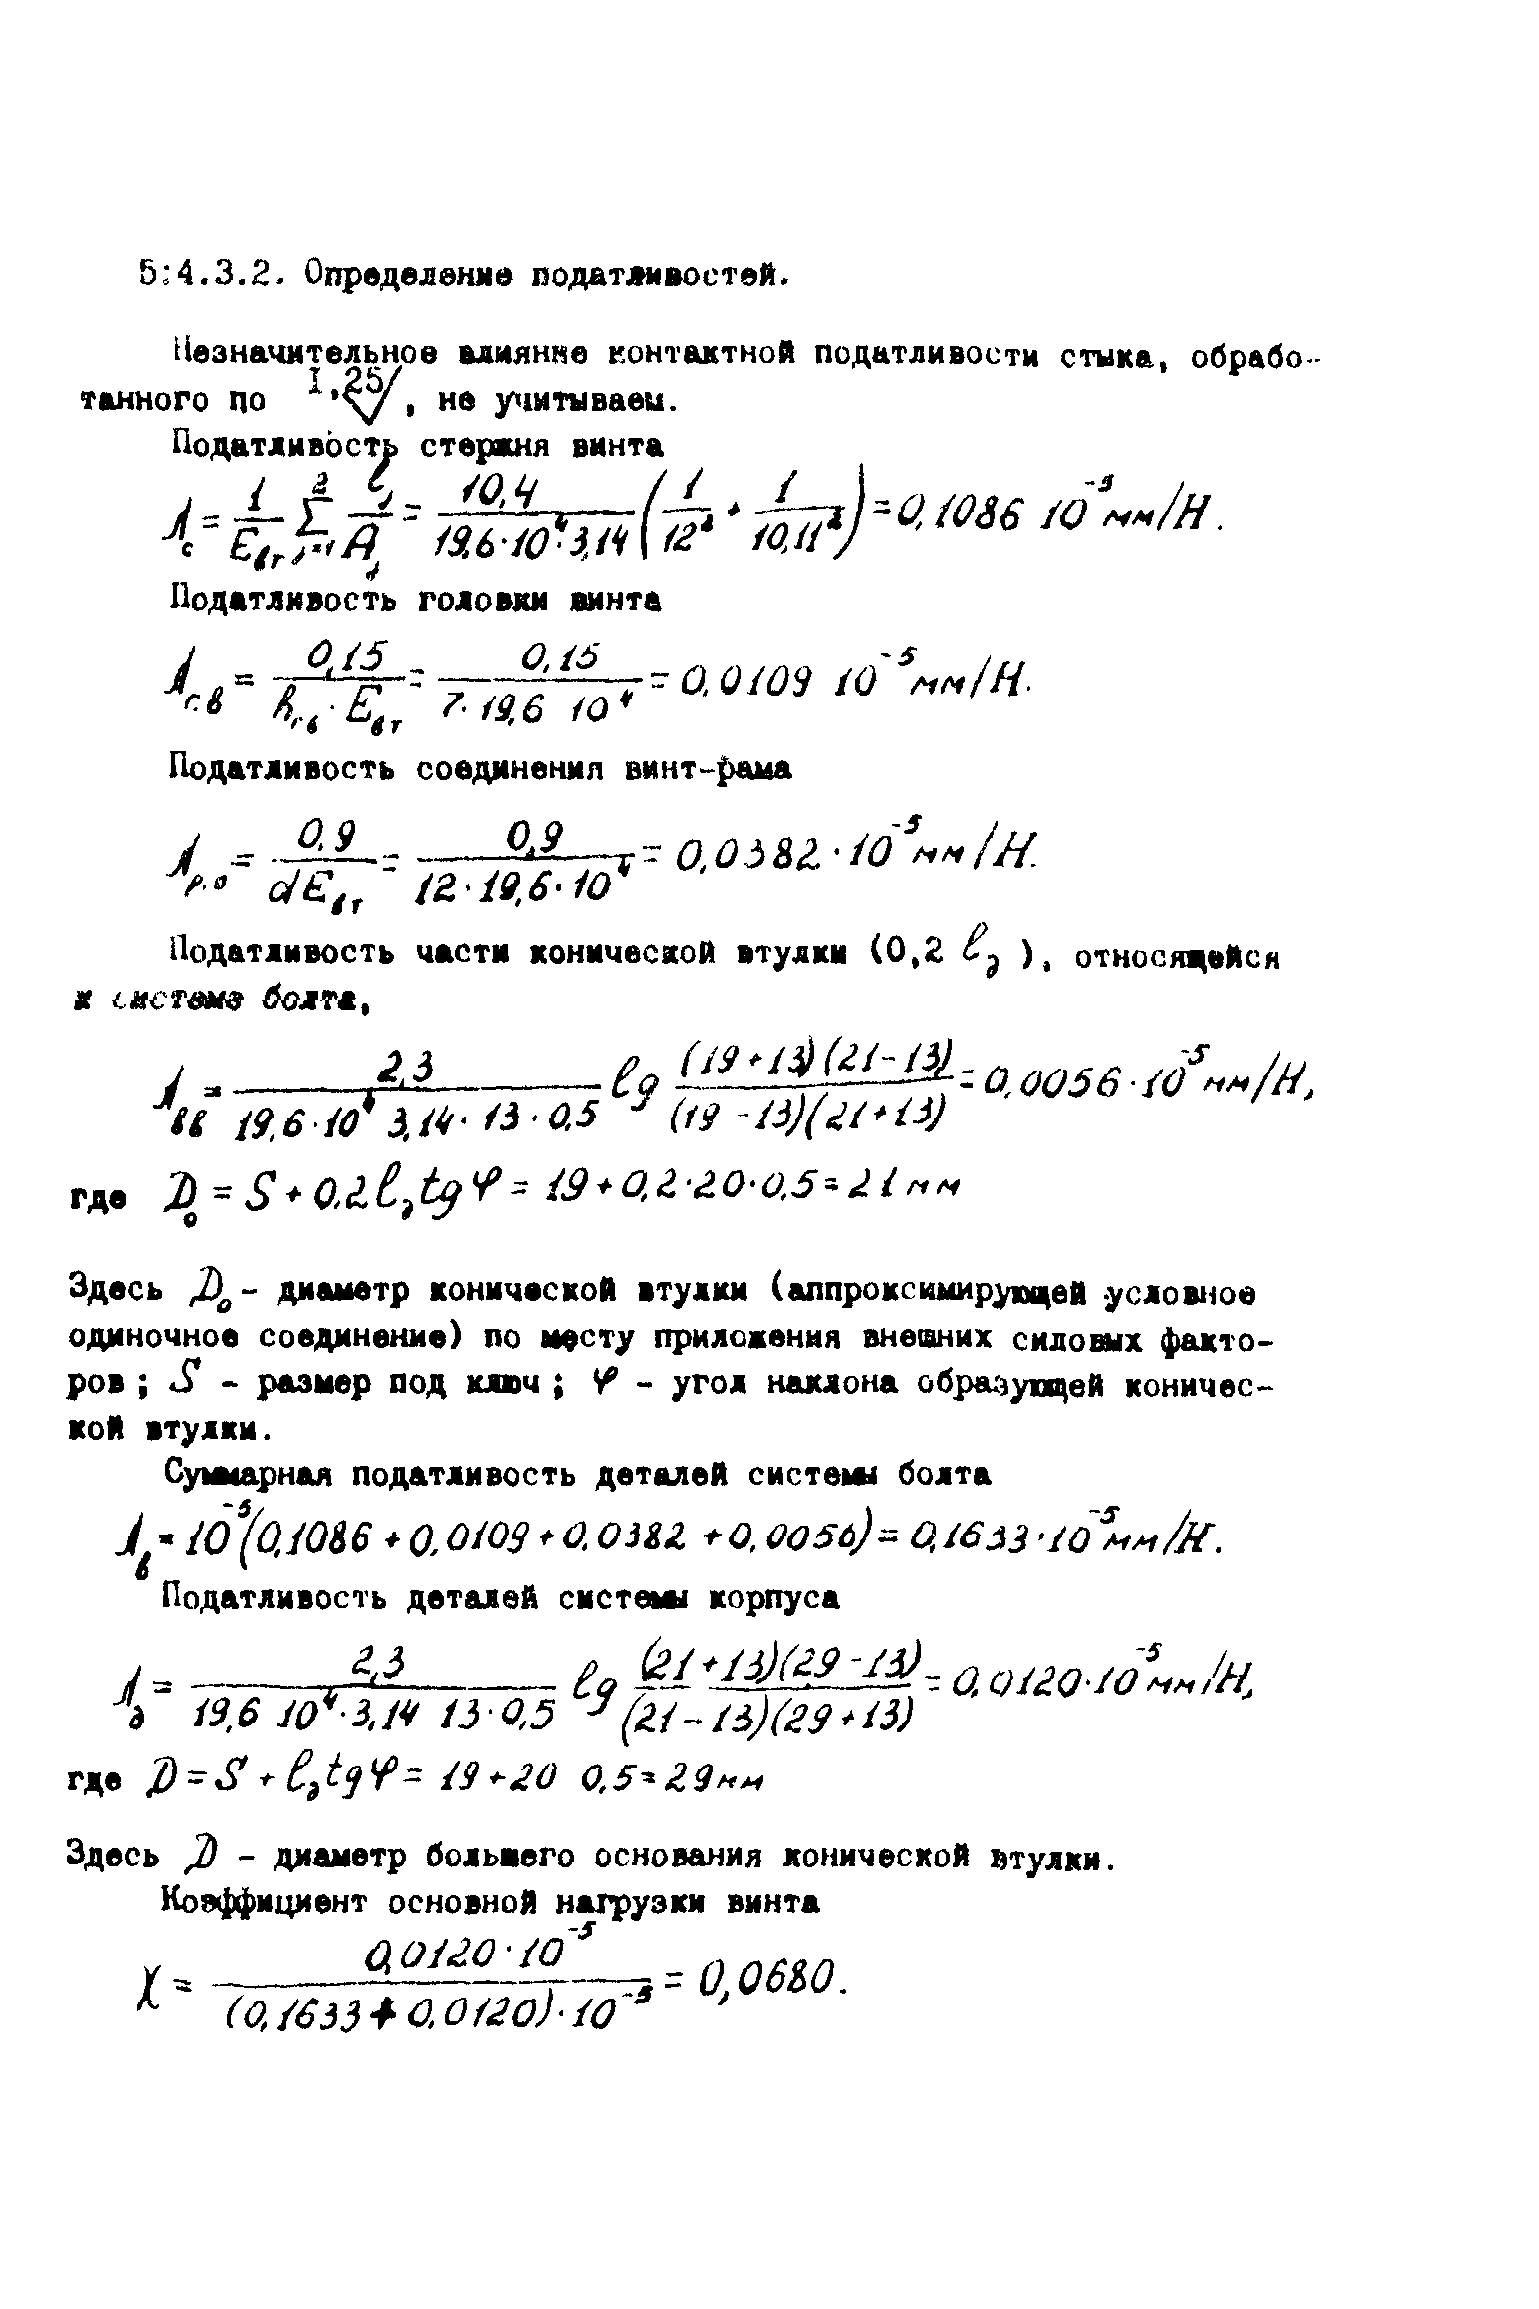 5.4.3.2. Определение податливостей.
Незначительное влияние контактной податливости стыка, обрабо-
танного по 1,25/, не учитываем.
Податливость стержня винта
λс = 1/Eвт Σ(j=1..2) lj/Aj = 10,4/(19,6·10⁴·3,14) (1/12² + 1/10,11²) = 0,1086 10⁻⁵ мм/Н.
Податливость головки винта
λг.в = 0,15/(hгв · Eвт) = 0,15/(7·19,6 10⁴) = 0,0109 10⁻⁵ мм/Н.
Податливость соединения винт-рама
λр.о = 0,9/(dEвт) = 0,9/(12·19,6·10⁴) = 0,0382·10⁻⁵ мм/Н.
Податливость части конической втулки (0,2 lд), относящейся
к системе болта,
λвв = 2,3/(19,6·10⁴ 3,14·13·0,5) lg (19+13)(21-13)/(19-13)(21+13) = 0,0056·10⁻⁵ мм/Н,
где D₀ = S + 0,2lд tgφ = 19+0,2·20·0,5=21 мм
Здесь D₀ - диаметр конической втулки (аппроксимирующей условное
одиночное соединение) по месту приложения внешних силовых факто-
ров; S - размер под ключ; φ - угол наклона образующей коничес-
кой втулки.
Суммарная податливость деталей системы болта
λв = 10⁻⁵(0,1086 + 0,0109 + 0,0382 + 0,0056) = 0,1633·10⁻⁵ мм/Н.
Податливость деталей системы корпуса
λд = 2,3/(19,6 10⁴·3,14 13·0,5) lg (21+13)(29-13)/(21-13)(29+13) = 0,0120·10⁻⁵ мм/Н,
где D = S + lд tgφ = 19+20 0,5=29мм
Здесь D - диаметр большего основания конической втулки.
Коэффициент основной нагрузки винта
χ = 0,0120·10⁻⁵/((0,1633+0,0120)·10⁻⁵) = 0,0680.